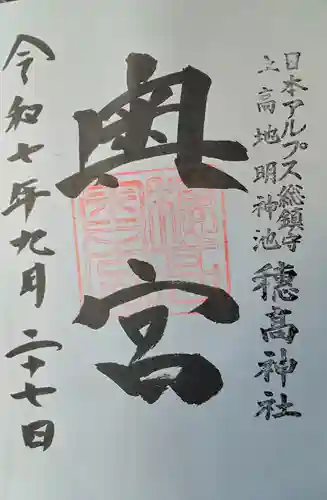 日本アルプス総鎮守
上高地明神池
穂高神社
奥宮
令和七年九月二十七日